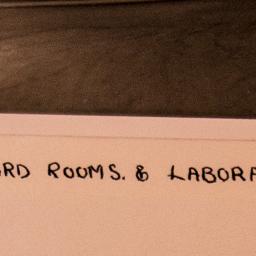 RD ROOMS. & LABORA